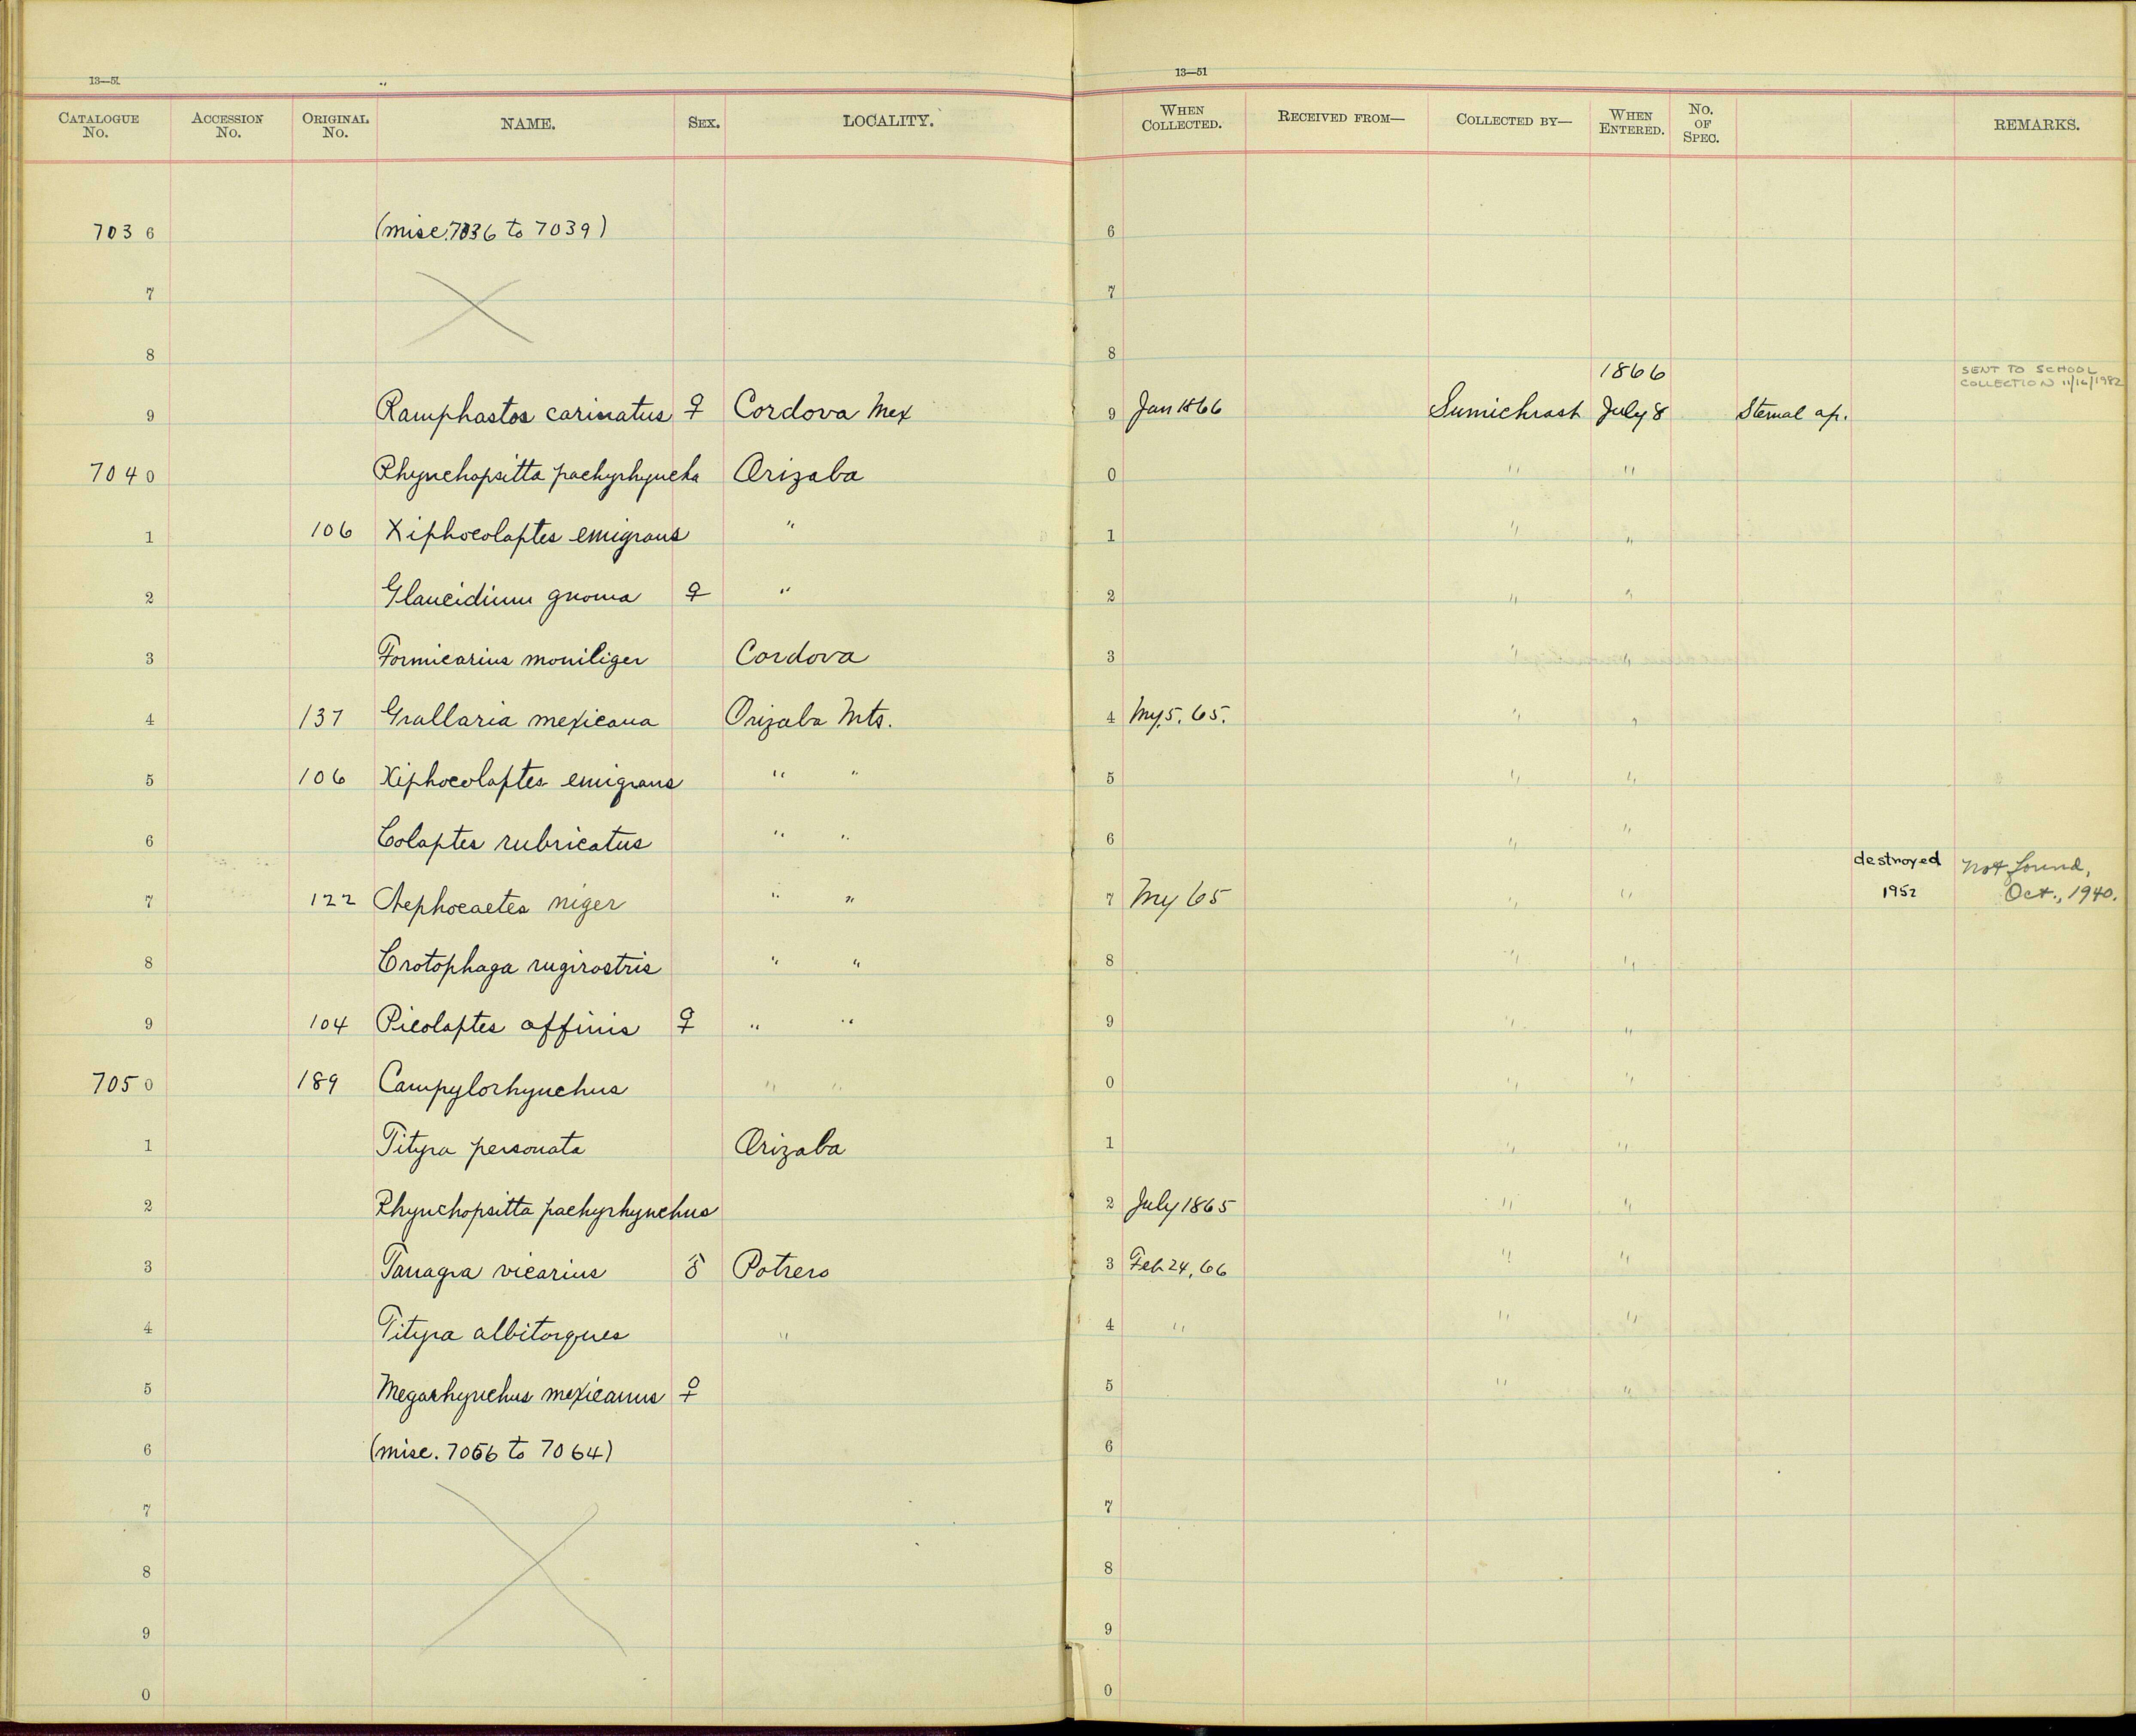 13—51
13—51
CATALOGUE No. ACCESSION No. ORIGINAL No. NAME. SEX. LOCALITY. WHEN COLLECTED. RECEIVED FROM— COLLECTED BY— WHEN ENTERED. No. OF SPEC. REMARKS.
703 6 (misc. 7036 to 7039) 6
7 7
8 8
1866 SENT TO SCHOOL
COLLECTION 11/16/1982
9 Ramphastos carinatus ♀ Cordova Mex 9 Jan 1866 Sumichrast July 8 Sternal ap.
704 0 Rhynchopsitta pachyrhyncha Orizaba 0 " "
1 106 Xiphocolaptes emigrans " 1 " "
2 Glaucidium gnoma ♀ " 2 " "
3 Formicarius moniliger Cordova 3 " "
4 137 Grallaria mexicana Orizaba Mts. 4 My. 5. 65. " "
5 106 Xiphocolaptes emigrans " " 5 " "
6 Colaptes rubricatus " " 6 " "
destroyed Not found,
7 122 Nephocaetes niger " " 7 My 65 " " 1952 Oct., 1940.
8 Crotophaga rugirostris " " 8 " "
9 104 Picolaptes affinis ♀ " " 9 " "
705 0 189 Campylorhynchus " " 0 " "
1 Tityra personata Orizaba 1 " "
2 Rhynchopsitta pachyrhynchus 2 July 1865 " "
3 Tanagra vicarius ♂ Potrero 3 Feb 24, 66 " "
4 Tityra albitorques " 4 " " "
5 Megarhynchus mexicanus ♀ 5 " "
6 (misc. 7056 to 7064) 6
7 7
8 8
9 9
0 0